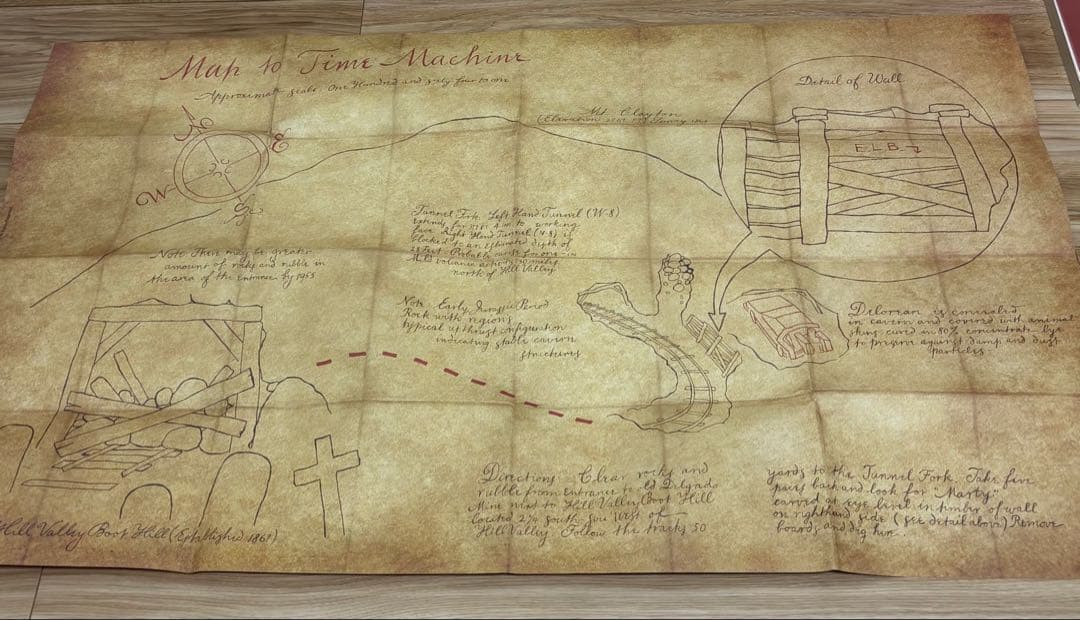 Map to Time Machine
Approximate Scale, One Hundred and sixty four to one
N
E
W
S
Mt. Clayton
Detail of Wall
E L B
Tunnel Fork. Left Hand Tunnel (W-S)
working
face Right Hand Tunnel (N-S) is
blocked to an estimated depth of
north of Hill Valley
Note There may be greater
amount of rocks and rubble in
the area of the entrance by 1955
Note Early Jurassic Period
Rock with regions
typical upthrust configuration
indicating stable cavern
structures
Delorean is concealed
in cavern and covered with animal
skins cured in 80% concentrate lye
to preserve against damp and dust
particles
Directions Clear rocks and
rubble from entrance to Ed Delgado
Mine next to Hill Valley Boot Hill
Located South West of
Hill Valley Follow the tracks 50
yards to the Tunnel Fork. Take five
paces back and look for "Marty"
carved at eye level in timber of wall
on right hand side (see detail above) Remove
boards and dig
Hill Valley Boot Hill (Established 1861)